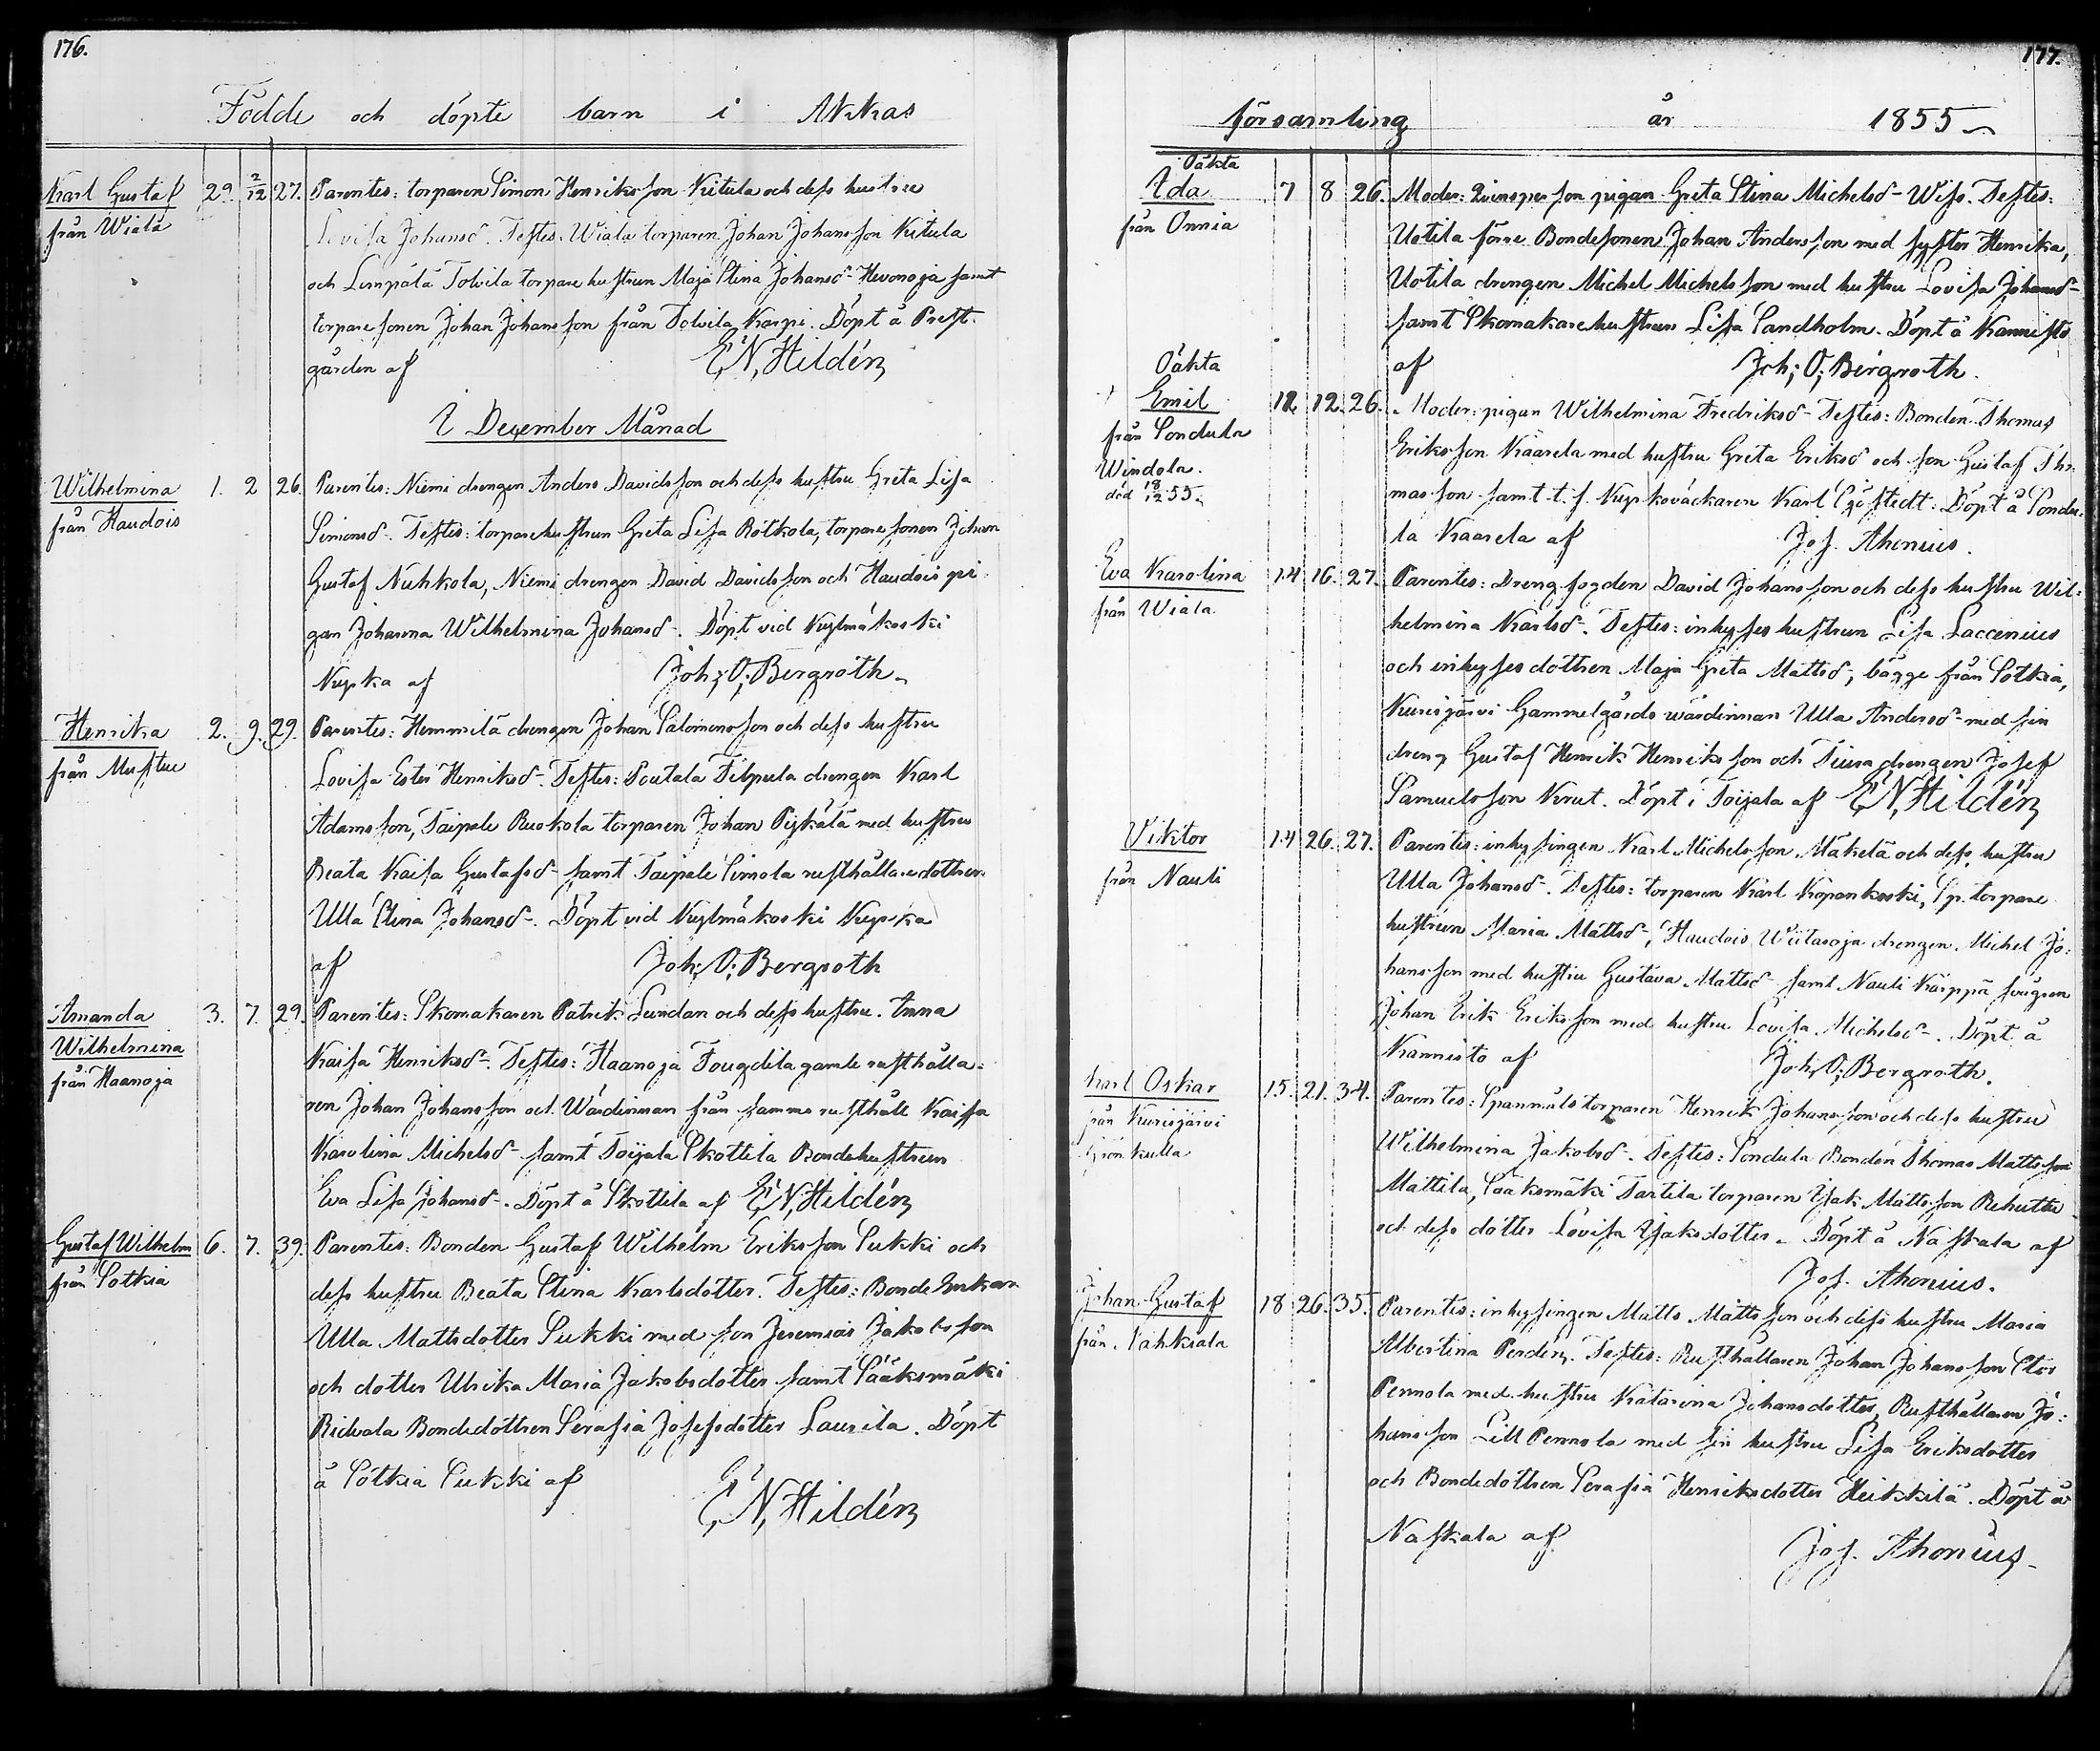 176.
Födde och döpte barn i Akkas
Karl Gustaf 29. 2/12 27. Parentes: torparen Simon Henriksson Kitula och dess hustru
från Wiala
Lovisa Johansd. Testes: Wiala torparen Johan Johansson Kitula
och Lempälä Tolvila torpare hustrun Maja Stina Johansd. Hevonoja samt
torpare sonen Johan Johansson från Tolvila Karpi. Döpt å Prest-
gården af E, N, Hildén
I December Månad
Wilhelmina 1. 2 26. Parentes: Niemi drengen Anders Davidsson och dess hustru Greta Lisa
från Haudois
Simonsd. Testes: torparehustrun Greta Lisa Rotkola, torpare sonen Johan
Gustaf Nuhkola, Niemi drengen David Davidsson och Haudois pi-
gan Johanna Wilhelmina Johansd. Döpt vid Kylmäkoski
Kyrka af Joh; O; Bergroth.
Henrika 2. 9. 29. Parentes: Hemmilä drengen Johan Salomonsson och dess hustru
från Mustue
Lovisa Ester Henriksd. Testes: Poutala Filpula drengen Karl
Adamsson, Taipale Ruokola torparen Johan Pykälä med hustru
Beata Kaisa Gustafsd. samt Taipale Simola rusthållaredottren
Ulla Stina Johansd. Döpt vid Kylmäkoski Kyrka
af Joh; O; Bergroth
Amanda 3. 7. 29. Parentes: Skomakaren Patrik Lundan och dess hustru Anna
Wilhelmina
från Haanoja
Kaisa Henriksd. Testes: Haanoja Fougdila gamle rusthålla-
ren Johan Johansson och Wärdinnan från samma rusthåll Kaisa
Karolina Michelsd. samt Toijala Skottila Bondehustrun
Eva Lisa Johansd. Döpt å Skottila af E, N, Hildén
Gustaf Wilhelm 6. 7. 39. Parentes: Bonden Gustaf Wilhelm Eriksson Sukki och
från Sotkia
dess hustru Beata Stina Karlsdotter. Testes: Bonde Enkan
Ulla Mattsdotter Sukki med son Jeremias Jakobsson
och dotter Ulrika Maria Jakobsdotter samt Sääksmäki
Ridvala Bondedottren Serafia Josefsdotter Laurila. Döpt
å Sotkia Sukki af E, N, Hildén
177.
församling år 1855
Oäkta
Ida 7 8 26. Moder: Qvinsperson pigan Greta Stina Michelsd. Wiss. Testes:
från Onnia
Uotila förre Bondesonen Johan Andersson med syster Henrika,
Uotila drengen Michel Michelsson med hustru Lovisa Johansd.
samt Skomakarehustrun Lisa Sandholm. Döpt å Kannisto
af Joh; O; Bergroth.
Oäkta
Emil 12. 12. 26. Moder: pigan Wilhelmina Fredriksd. Testes: Bonden Thomas
från Sondula
Windola.
död 18/12 55.
Eriksson Kaarela med hustru Greta Eriksd. och son Gustaf Tho-
masson samt t. f. Kyrkoväckaren Karl Sjöstedt. Döpt å Sondu-
la Kaarela af Jos. Ahonius.
Eva Karolina 14 16. 27. Parentes: Drengfogden David Johansson och dess hustru Wil-
från Wiala.
helmina Karlsd. Testes: inhyses hustrun Lisa Laccenius
och inhyses dottren Maja Greta Mattsd, bägge från Sotkia,
Kurisjärvi Gammelgårds wärdinnan Ulla Andersd. med sin
dreng Gustaf Henrik Henriksson och Tiura drengen Josef
Samuelsson Knut. Döpt i Toijala af E, N, Hildén
Viktor 14 26. 27. Parentes: inhysingen Karl Michelsson Mäkelä och dess hustru
från Nauli
Ulla Johansd. Testes: torparen Karl Kopankoski, Sp. torpare
hustrun Maria Mattsd, Haudois Wiitasoja drengen Michel Jo-
hansson med hustru Gustava Mattsd. samt Nauli Kärppä svägren
Johan Erik Eriksson med hustru Lovisa Michelsd. Döpt å
Kannisto af Joh, O; Bergroth.
Karl Oskar 15. 21. 34. Parentes: Spannmåls torparen Henrik Johansson och dess hustru
från Kurisjärvi
Grönkulla
Wilhelmina Jakobsd. Testes: Sondula Bonden Thomas Mattsson
Mattila, Sääksmäki Tartila torparen Isak Mattsson Rehuttu
och dess dotter Lovisa Isaksdotter. Döpt å Naskala af
Jos. Ahonius.
Johan Gustaf 18. 26. 35. Parentes: inhysingen Matts Mattsson och dess hustru Maria
från Nahkiala
Albertina Perdén. Testes: Rusthållaren Johan Johansson Stor
Pennola med hustru Katarina Johansdotter, Rusthållaren Jo-
hansson Lill Pennola med sin hustru Lisa Eriksdotter
och Bondedottren Serafia Henriksdotter Heikkilä. Döpt å
Naskala af Jos. Ahonius